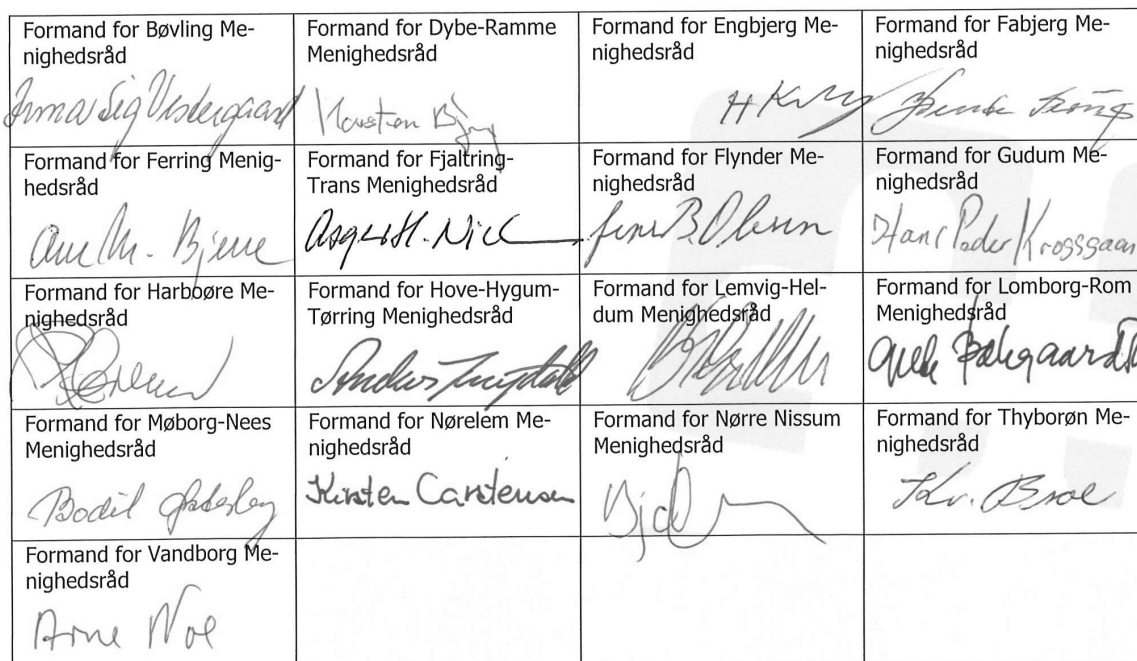 Formand for Bøvling Me-
nighedsråd
Irma Sig Vestergaard
Formand for Dybe-Ramme
Menighedsråd
Karsten
Formand for Engbjerg Me-
nighedsråd
Formand for Fabjerg Me-
nighedsråd
Formand for Ferring Menig-
hedsråd
Ane M. Bjerre
Formand for Fjaltring-
Trans Menighedsråd
Asger H. Nic
Formand for Flynder Me-
nighedsråd
Jens B. Olesen
Formand for Gudum Me-
nighedsråd
Hans Peder Krogsgaar
Formand for Harboøre Me-
nighedsråd
Formand for Hove-Hygum-
Tørring Menighedsråd
Anders
Formand for Lemvig-Hel-
dum Menighedsråd
Formand for Lomborg-Rom
Menighedsråd
Formand for Møborg-Nees
Menighedsråd
Bodil
Formand for Nørelem Me-
nighedsråd
Kirsten Carstensen
Formand for Nørre Nissum
Menighedsråd
Formand for Thyborøn Me-
nighedsråd
Kr. Broe
Formand for Vandborg Me-
nighedsråd
Arne Noe